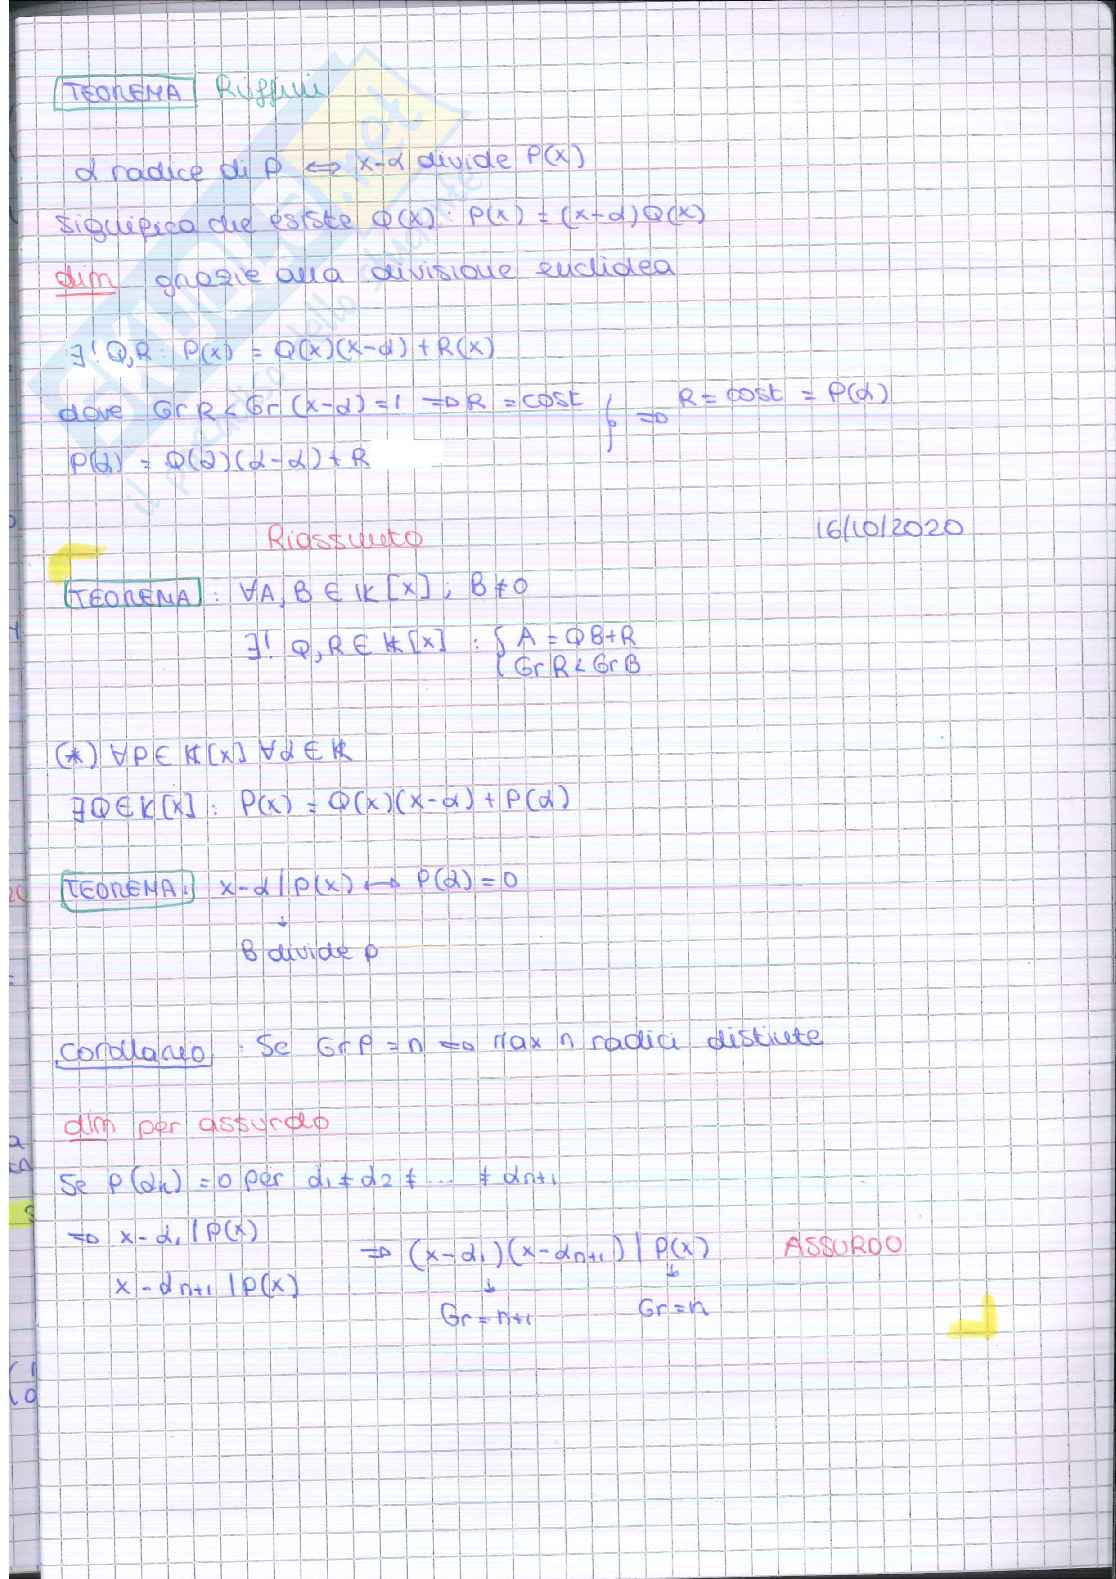 TEOREMA Ruffini
α radice di P ⇔ x-α divide P(x)
significa che esiste Q(x): P(x) = (x-α)Q(x)
dim grazie alla divisione euclidea
∃! Q,R : P(x) = Q(x)(x-α) + R(x)
dove Gr R < Gr (x-α) = 1 ⇒ R = cost } ⇒ R = cost = P(α)
P(α) = Q(α)(α-α) + R
Riassunto 16/10/2020
TEOREMA : ∀A, B ∈ K[x], B ≠ 0
∃! Q, R ∈ K[x] : { A = QB+R
Gr R < Gr B
(*) ∀P ∈ K[x] ∀α ∈ K
∃Q ∈ K[x] : P(x) = Q(x)(x-α) + P(α)
TEOREMA: x-α | P(x) ↔ P(α) = 0
↓
B divide P
Corollario : Se Gr P = n ⇒ Max n radici distinte
dim per assurdo
Se P(αk) = 0 per α1 ≠ α2 ≠ ... ≠ αn+1
⇒ x-α1 | P(x) ⇒ (x-α1)(x-αn+1) | P(x) ASSURDO
x-αn+1 | P(x) ↓ ↓
Gr = n+1 Gr = n